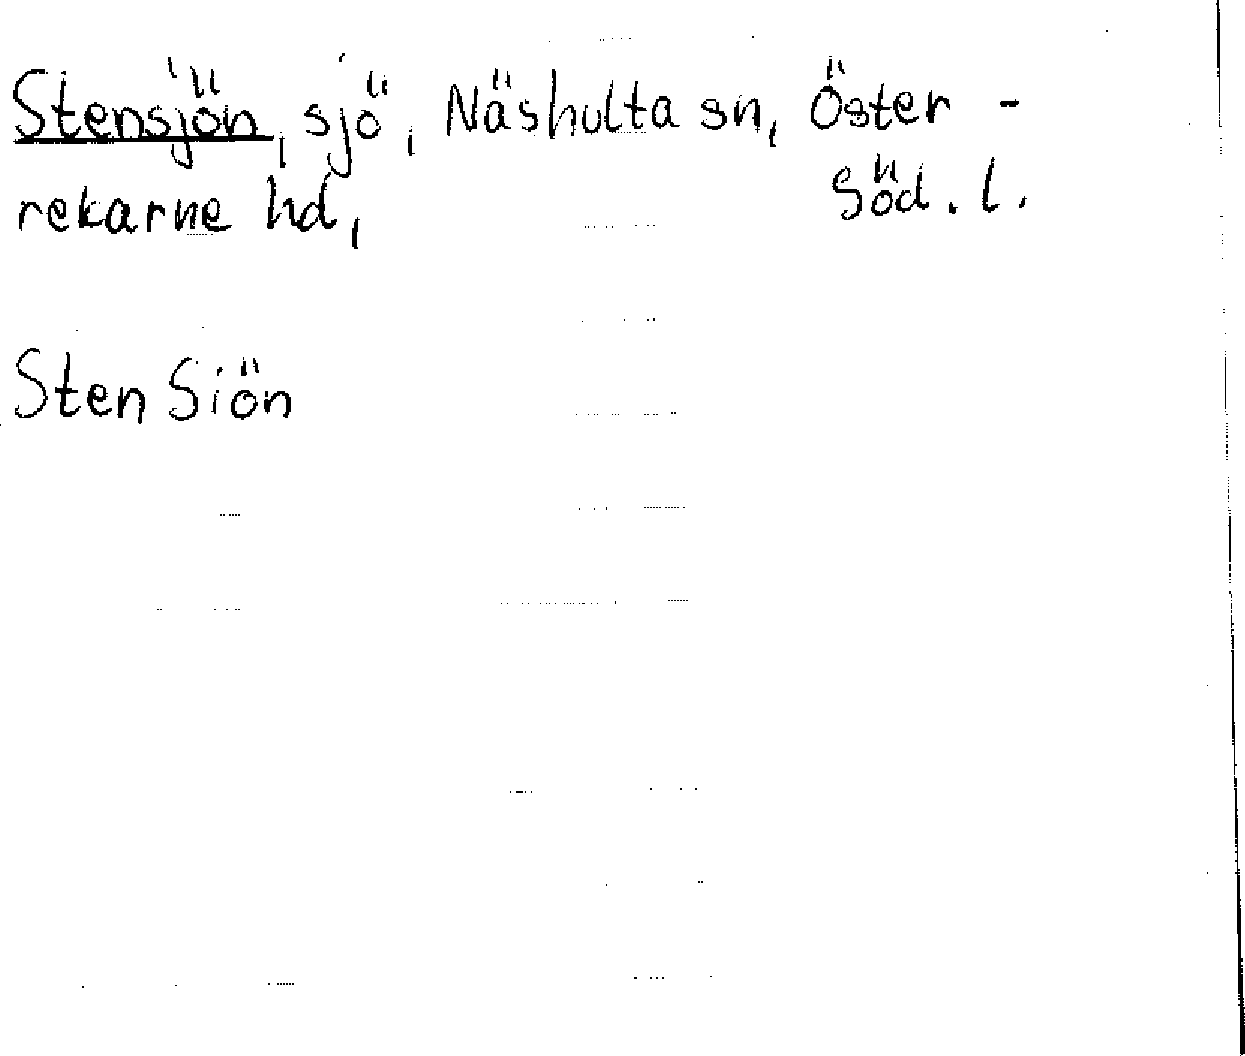 Stensjön, sjö, Näshulta sn, Öster-
rekarne hd, Söd. l.
Sten Siön